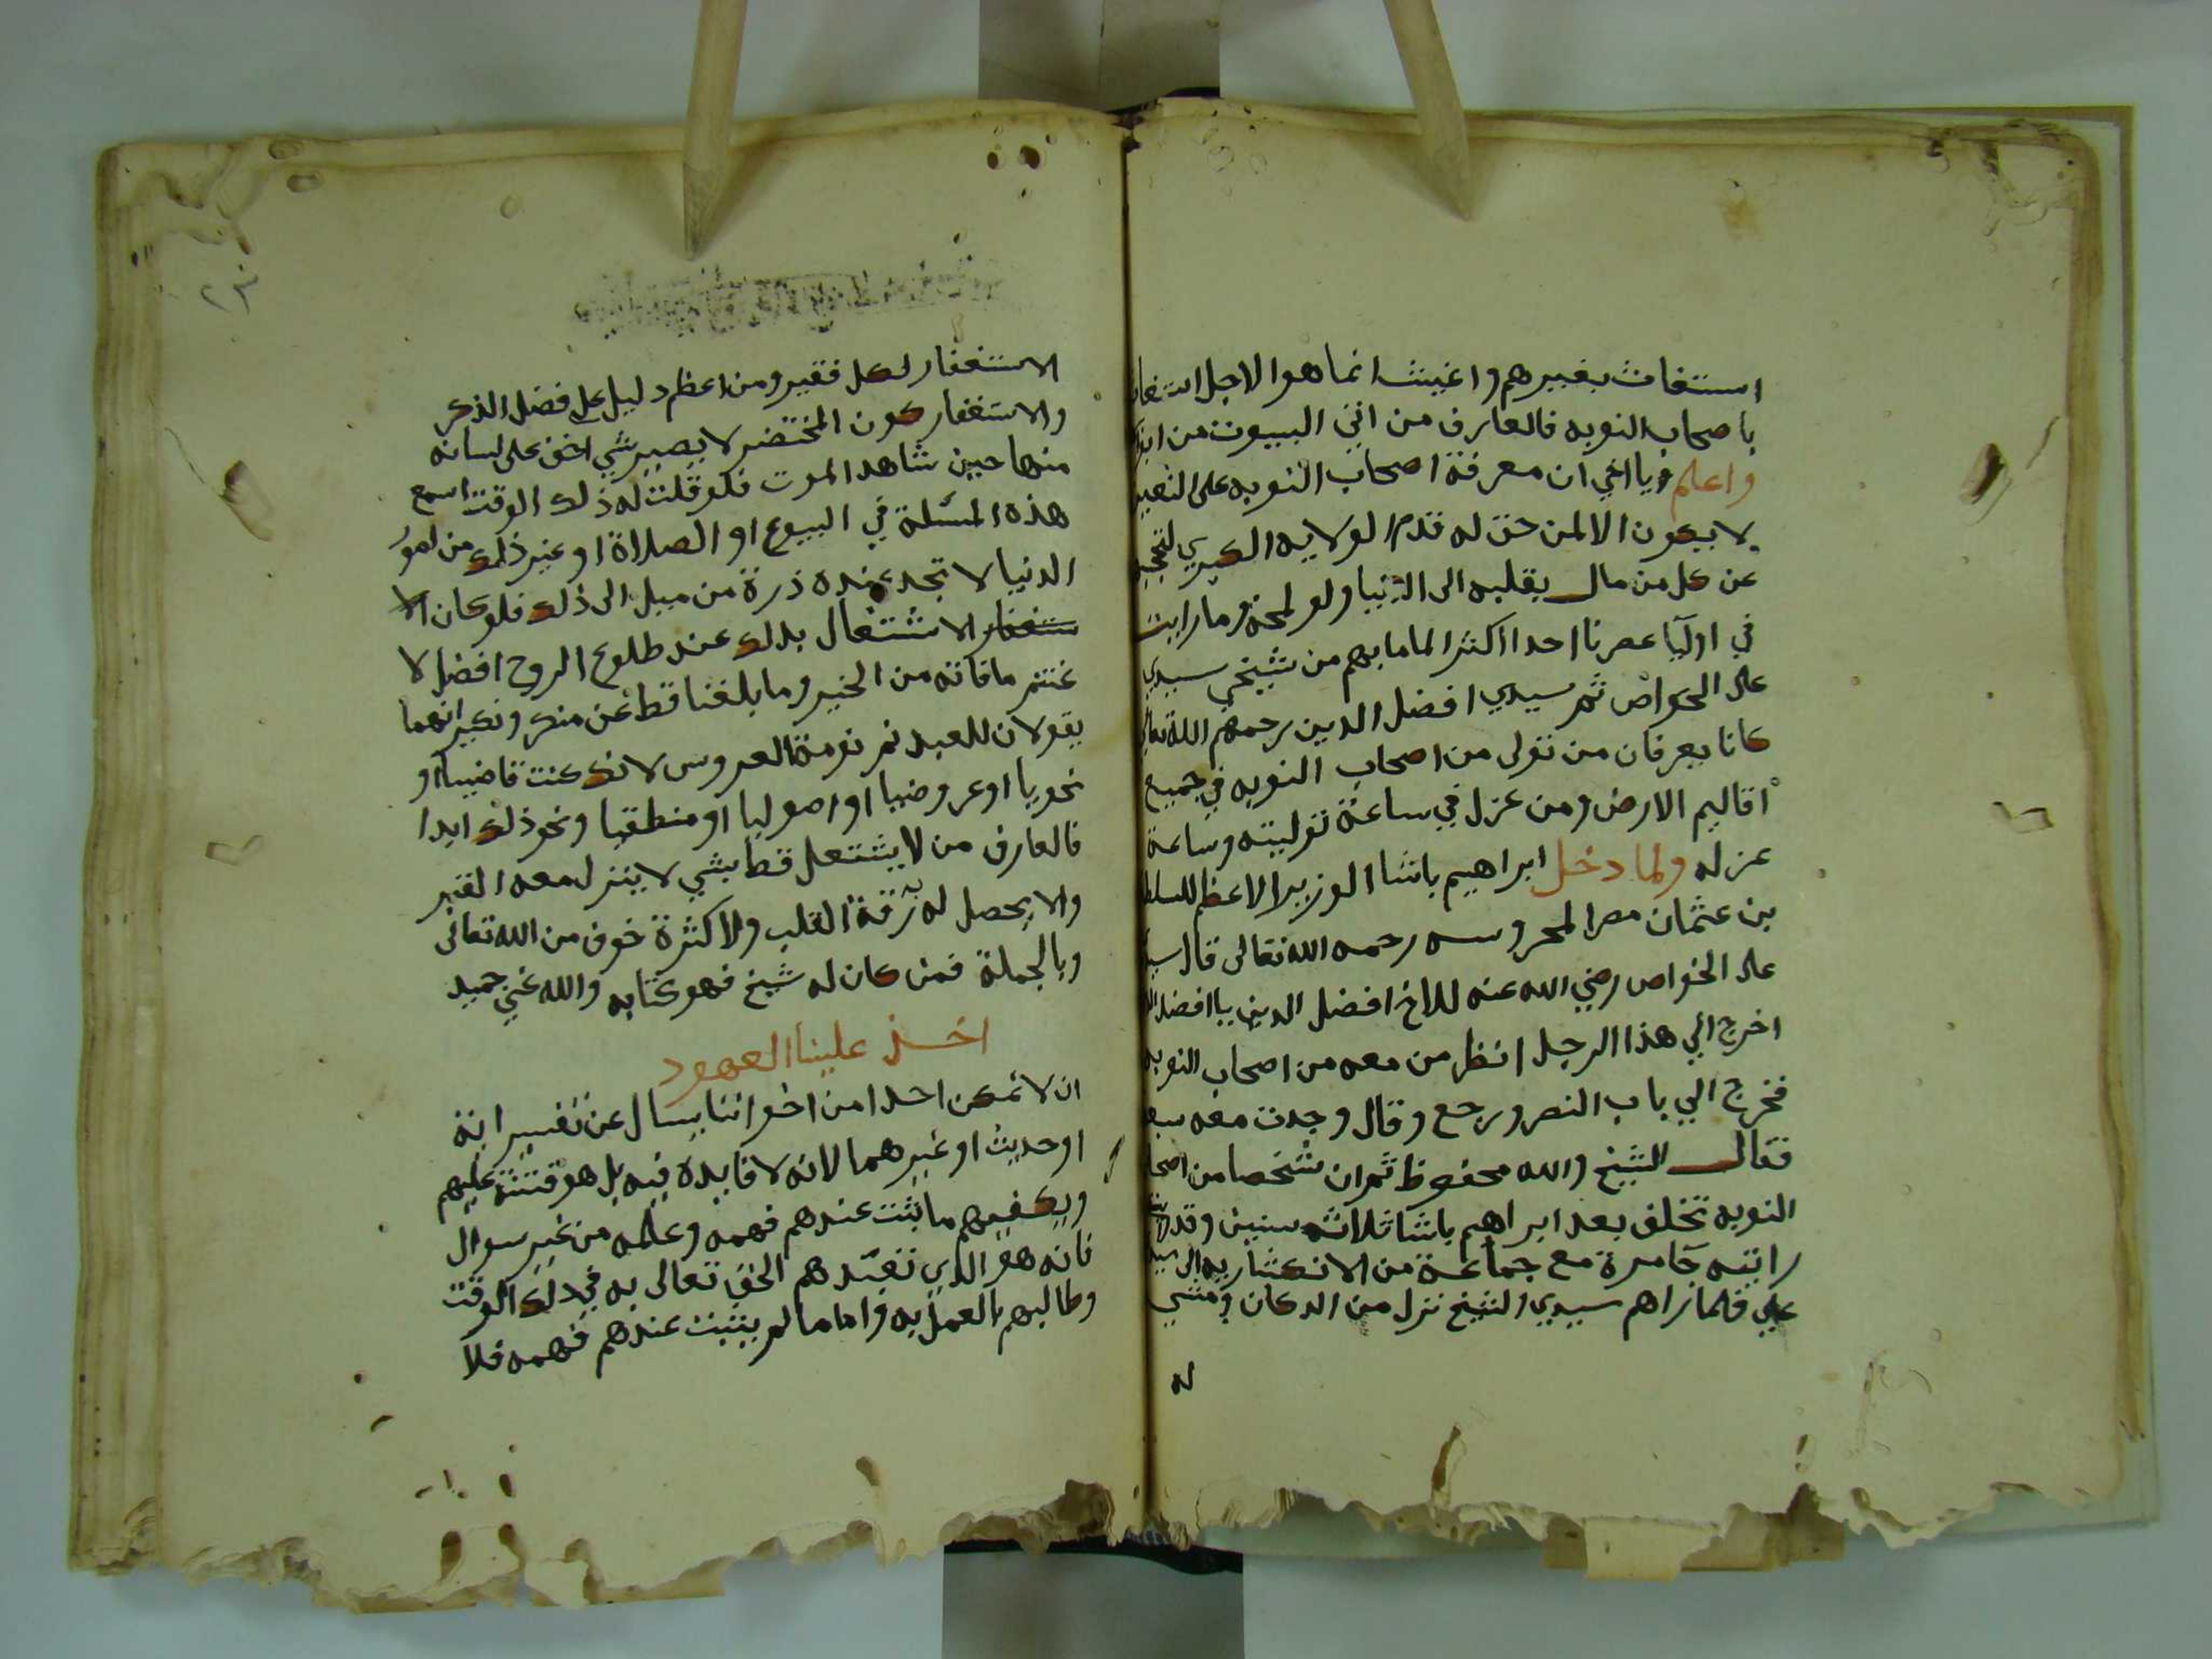 استغاث بغيرهم واغيث انما هوا لاجل استغاث
باصحاب النوبه فالعارف من اتى البيوت من ابوا
واعلم يا اخي ان معرفة اصحاب النوبه على التعيين
لا يكون الا لمن حق له قدم الولايه الكبري لتحجبهم
عن كل من مال بقلبه الى الدنيا ولو لمحة وما رايت
في اوليا عصرنا احدا اكثر الماما بهم من شيخي سيدي
على الخواص ثم سيدي افضل الدين رحمهم الله تعالى
كانا يعرفان من تولى من اصحاب النوبه في جميع
اقاليم الارض ومن عزل في ساعة توليته وساعة
عزله ولما دخل ابراهيم باشا الوزير الاعظم للسلط
بن عثمان مصر المحروسه رحمه الله تعالى قال سيد
على الخواص رضي الله عنه للاخ افضل الدين يا افضل ال
اخرج الي هذا الرجل انظر من معه من اصحاب النوبه
فخرج الي باب النصر ورجع وقال وجدت معه سبع
فقال الشيخ والله محفوظ ثم ان شخصا من اصحا
النوبه تخلف بعد ابراهيم باشا ثلاث سنين وقد
رايته جا مرة مع جماعة من الانكشاريه الى سيد
علي فلما راهم سيدي الشيخ نزل من الدكان ومشي
له
الاستغفار لكل فقير ومن اعظم دليل على فضل الذكر
والاستغفار كون المختضر لا يصير شي اخف على لسانه
منها حين شاهد الموت فلو قلت له ذلك الوقت اسمع
هذه المسئلة في البيوع او الصلاة او غير ذلك من امور
الدنيا لا تجد عنده ذرة من ميل الى ذلك فلو كان الا
ستغفار الاشتغال بذلك عند طلوع الروح افضل لا
غتنم ما فاته من الخير وما بلغنا قط عن منكر ونكير انهما
يقولان للعبد نم نومة العروس لانك كنت قاضيا او
نحويا او عروضيا او اصوليا او منطقيا ونحو ذلك ابدا
فالعارف من لا يشتغل قط بشي لا ينزل معه القبر
ولا يحصل له به رقة القلب ولا كثرة خوف من الله تعالى
وبالجملة فمن كان له شيخ فهو كتابه والله غني حميد
اخذ علينا العهود
ان لا نمكن احدا من اخواننا يسال عن تفسير اية
او حديث او غيرهما لانه لا فايدة فيه بل هو فتنة عليهم
ويكفيهم ما يثبت عندهم فهمه وعلمه من غير سوال
فانه هو الذي تعبدهم الحق تعالى به في ذلك الوقت
وطالبهم بالعمل به واما ما لم يثبت عندهم فهمه فلا